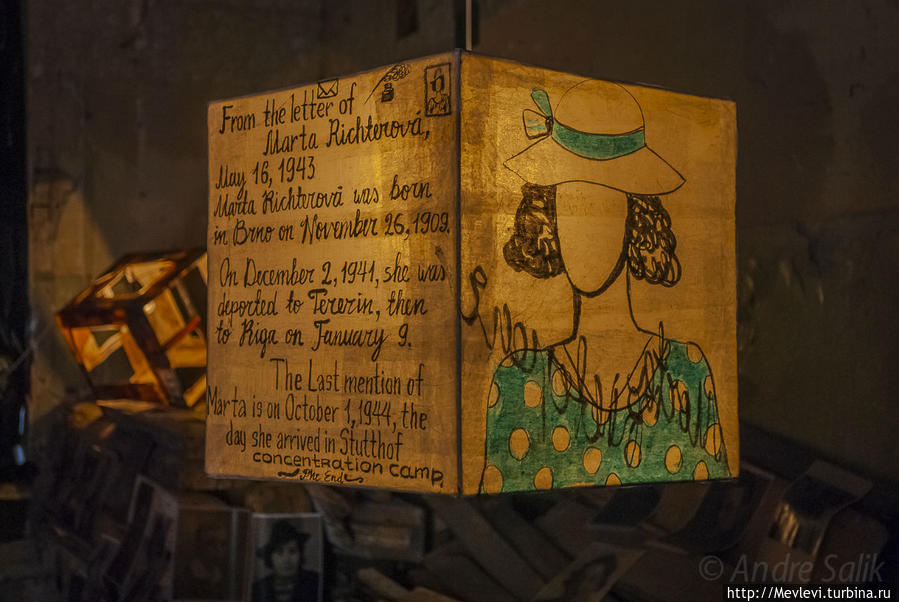 From the letter of
Marta Richterová,
May 16, 1943
Marta Richterová was born
in Brno on November 26, 1909.
On December 2, 1941, she was
deported to Terezin, then
to Riga on January 9.
The Last mention of
Marta is on October 1, 1944, the
day she arrived in Stutthof
concentration camp.
The End
© Andre Salik
http://Mevlevi.turbina.ru